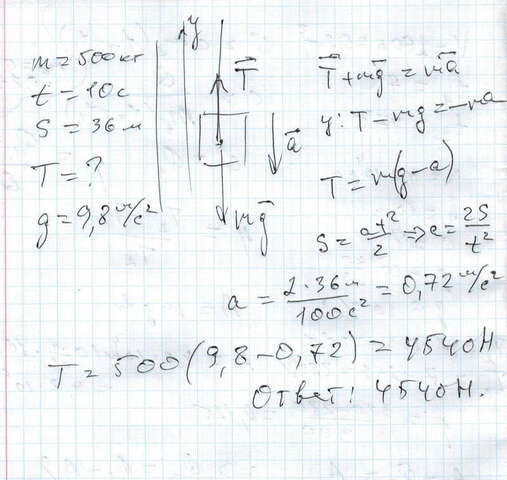 m = 500 кг
t = 10 с
S = 36 м
T = ?
g = 9,8 м/с²
y
T⃗
a⃗
mg⃗
T⃗ + mg⃗ = ma⃗
y: T - mg = -ma
T = m(g - a)
S = at²/2 ⇒ a = 2S/t²
a = 2·36 м/100 с² = 0,72 м/с²
T = 500 (9,8 - 0,72) = 4540 Н
Ответ: 4540 Н.